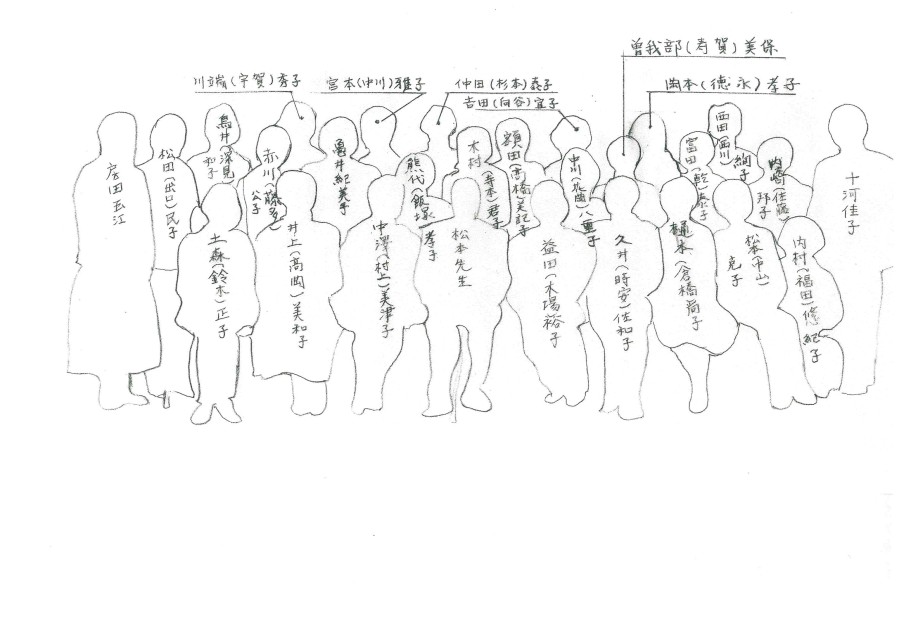 曽我部(寿賀)美保
川端(宇賀)秀子
宮本(中川)雅子
仲田(杉本)泰子
岡本(徳永)孝子
吉田(向谷)宜子
西田(西川)絢子
鳥井(深見)和子
松田(出口)民子
赤川(藤多)公子
亀井紀美子
熊代(飯塚)孝子
木村(寺本)君子
額田(高橋)美記子
富田(乾)泰子
十河佳子
土森(鈴木)正子
井上(高岡)美和子
中澤(村上)美津子
松本先生
益田(木場)裕子
久井(時安)佐和子
樋本(倉橋)尚子
松本(中山)克子
内村(福田)悠紀子